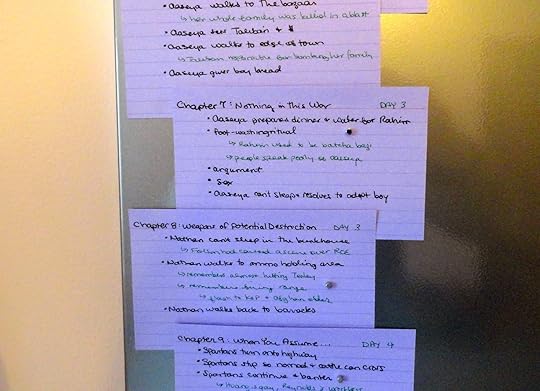 • Aaseya walks to the bazaar
↳ her whole family was killed in a blast
• Aaseya sees Taliban &
• Aaseya walks to edge of town
↳ Taliban responsible for bombing her family
• Aaseya gives boy bread
Chapter 7: Nothing in this War DAY 3
• Aaseya prepares dinner & water for Rahim
• foot-washing ritual
↳ Rahim used to be batcha bazi
↳ people speak poorly of Aaseya
• argument
• Sex
• Aaseya can't sleep & resolves to adopt boy
Chapter 8: Weapons of Potential Destruction DAY 3
• Nathan can't sleep in the bunkhouse
↳ Folson had caused a scene over ROE
• Nathan walks to ammo holding area
↳ remembers almost hitting Tenley
↳ remembers firing range
↳ flash to & Afghan elder
• Nathan walks back to barracks
Chapter 9: When You Assume... DAY 4
• Spartans turn onto highway
• Spartans stop so nomad & cattle can cross
• Spartans continue & banter
↳ Huang is gay, Reynolds